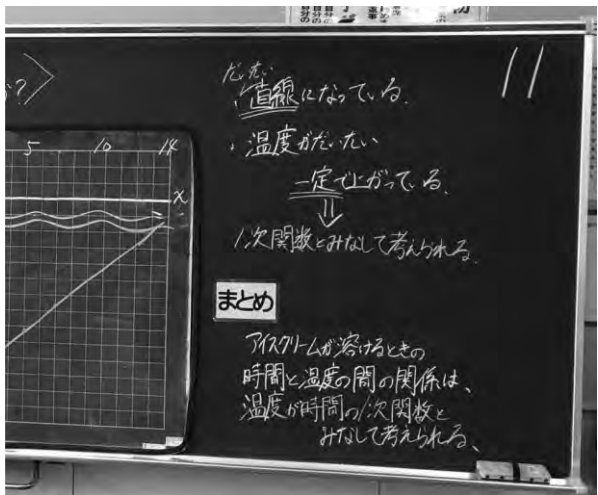 ?>
だいたい
・直線になっている.
・温度がだいたい
一定で上がっている.
⇓
1次関数とみなして考えられる.
まとめ
アイスクリームが溶けるときの
時間と温度の間の関係は、
温度が時間の1次関数と
みなして考えられる、
11
5 10 14
x